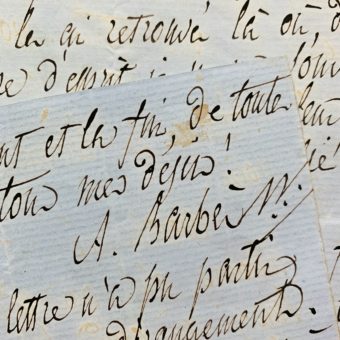 la qi retrouvé là où, d
re d'esprit
nt et la fin, de toute
tous mes désirs!
A. Barbès
lettre n'a pu partir
dérangement.